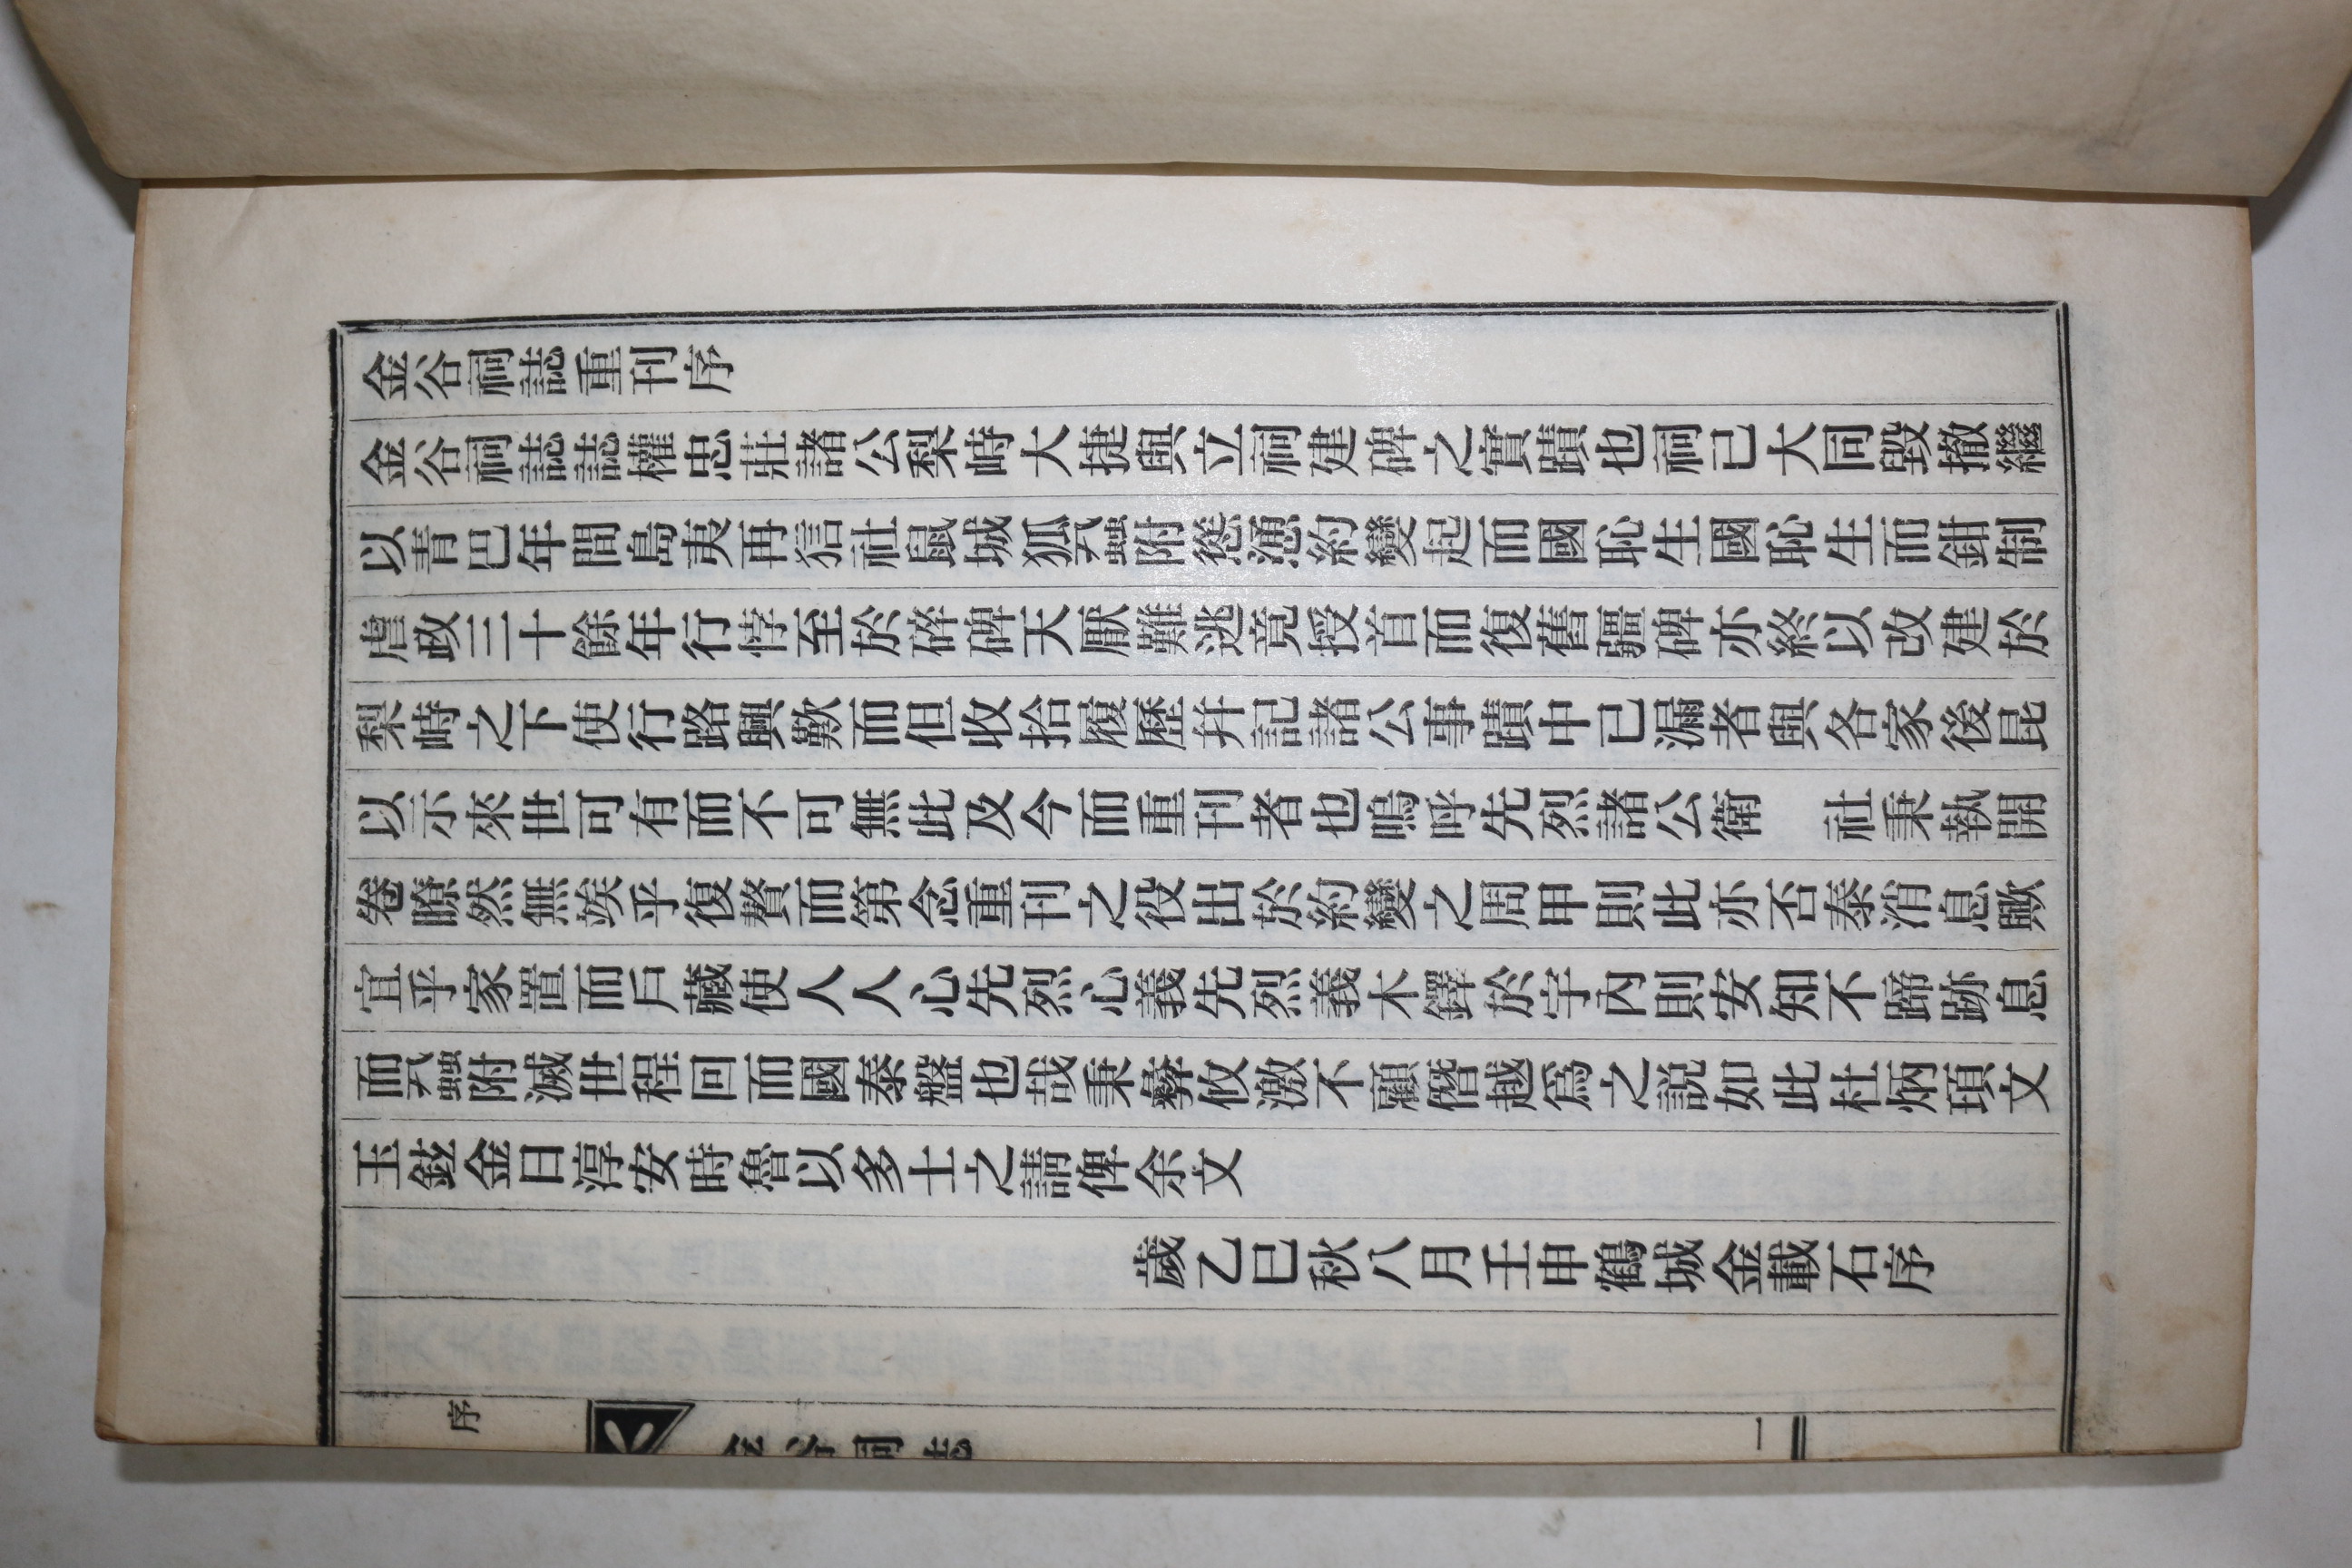 金谷祠誌重刊序
金谷祠誌誌權忠莊諸公梨峙大捷與立祠建碑之實蹟也祠已大同毀撤繼
以青巴年間島夷再狺社鼠城狐蝨附慫慂約變起而國恥生國恥生而鉗制
虐政三十餘年行悖至於碎碑天厭難逃竟授首而復舊疆碑亦終以改建於
梨峙之下使行路興歎而但收拾履歷幷記諸公事蹟中已漏者與各家後昆
以示來世可有而不可無此及今而重刊者也嗚呼先烈諸公衛 社秉執開
卷瞭然無竢乎復贅而第念重刊之役出於約變之周甲則此亦否泰消息歟
宜乎家置而戶藏使人人心先烈心義先烈義木鐸於宇內則安知不蹄跡息
而蝨附滅世程回而國泰盤也哉秉彜攸激不顧僭越爲之説如此杜炳頊文
玉鉉金日淳安時魯以多士之請俾余文
歲乙巳秋八月壬申鶴城金載石序
序
金谷祠誌
一